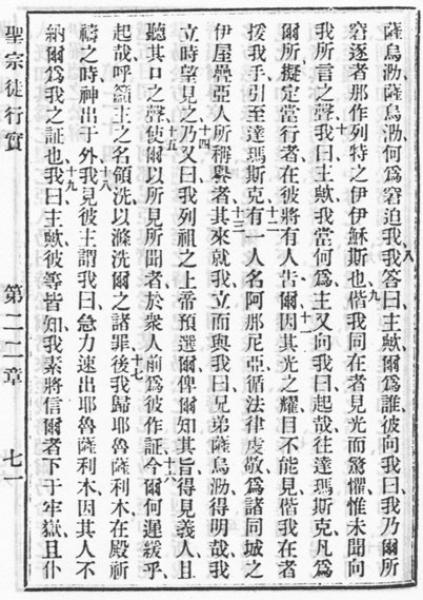 薩烏泐薩烏泐何爲窘迫我八我答曰主歟爾爲誰彼向我曰我乃爾所
窘逐者那作列特之伊伊穌斯也九偕我同在者見光而驚懼惟未聞向
我所言之聲十我曰主歟我當何爲主又向我曰起哉往達瑪斯克凡爲
爾所擬定當行者在彼將有人吿爾十一因其光之耀目不能見偕我在者
援我手引至達瑪斯克十二有一人名阿那尼亞循法律虔敬爲諸同城之
伊屋疊亞人所稱譽者十三其來就我立而與我曰兄弟薩烏泐得明哉我
立時望見之乃十四又曰我列祖之上帝預選爾俾爾知其旨得見義人且
聽其口之聲十五使爾以所見所聞者於衆人前爲彼作証十六今爾何遲緩乎
起哉呼籲主之名領洗以滌洗爾之諸罪十七後我歸耶魯薩利木在殿祈
禱之時神出于外十八我見彼主謂我曰急力速出耶魯薩利木因其人不
納爾爲我之証也十九我曰主歟彼等皆知我素將信爾者下于牢獄且仆
聖宗徒行實 第二二章 七一